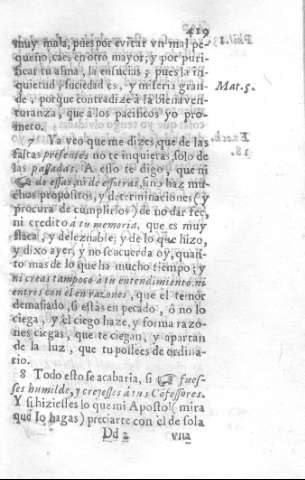 419
muy mala, pues por evitar vn mal pe-
queño, cae en otro mayor, y por puri-
ficar tu alma, la ensucias; pues la in-
quietud, suciedad es, y miseria gran-
de, porque contradize à la bienaven-
turanza, que à los pacificos yo pro-
meto.
Mat. 5.
7 Ya veo que me dizes, que de las
faltas presentes no te inquietas, solo de
las passadas. A esto te digo, que ni
de essas, ni de essotras, sino haz mu-
chos propositos, y determinaciones (y
procura de cumplirlos) de no dar fee,
ni credito à tu memoria, que es muy
flaca, y deleznable; y de lo que hizo,
y dixo ayer, y no se acuerda oy, quan-
to mas de lo que ha mucho tiempo; y
ni creas tampoco à tu entendimiento, ni
entres con el en razones, que el temor
demasiado, si estàs en pecado, ò no lo
ciega, y el ciego haze, y forma razo-
nes ciegas, que te ciegan, y apartan
de la luz, que tu possees de ordina-
rio.
8 Todo esto se acabaria, si fues-
ses humilde, y creyesses à tus Cõfessores.
Y si hiziesses lo que mi Apostol (mira
que lo hagas) preciarte con èl de sola
Dd 2 vna